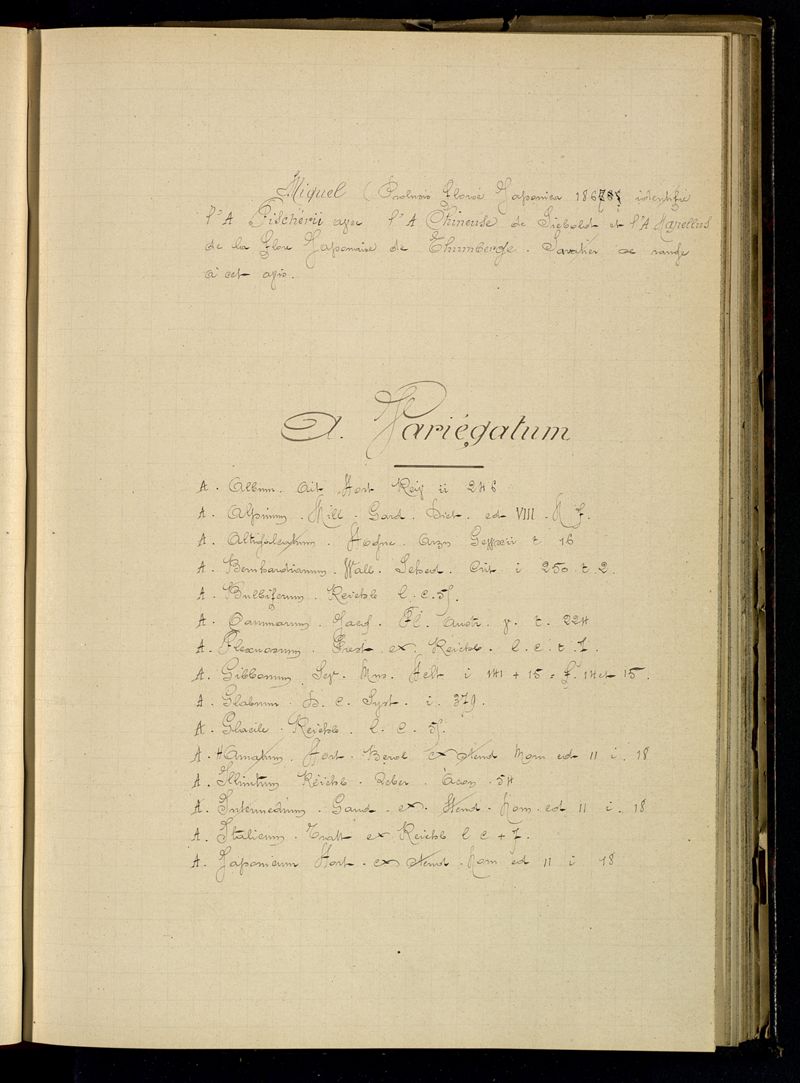 Miguel (Prolusio Floræ Japonica 18678? identifie
l'A Fischérii avec l'A Chineuse de Siebold et l'A Napellus
de la Flore Japonaise de Thumberge. Savatier se range
à cet avis.
A. Variégatum
A. Album. Ait Hort Kew ii 246
A. Alpinum. Mill. Gard. Dict. ed VIII. N
A. Altigaleatum. Hayne. Arzn Gewxii t. 16
A. Bernhardianum. Wall. Sched. Crit i 250 t. 2.
A. Bulbiferum. Reichb l. c. 5
A. Cammarum. Jacq. Fl. Austr. t. 224
A. Flexuosum. Prest ex. Reichb. l. c. t. 7.
A. Gibbosum Ser. Mus. Helt i 141 + 15 = f. 14et 15.
A. Glabrum. D. C. Syst. i. 379.
A. Glacile Reichb. l. c. 5
A. Hamatum. Hort. Berol ex Stend Nom ed 11 i. 18
A. Illinitum Reichb. Acon. 54
A. Intermedium. Gaud. ex. Stend. Nom. ed 11 i. 18
A. Italicum. Tratt ex Reichb l c + 7.
A. Japonicum Hort. ex Stend. Nom ed 11 i 18